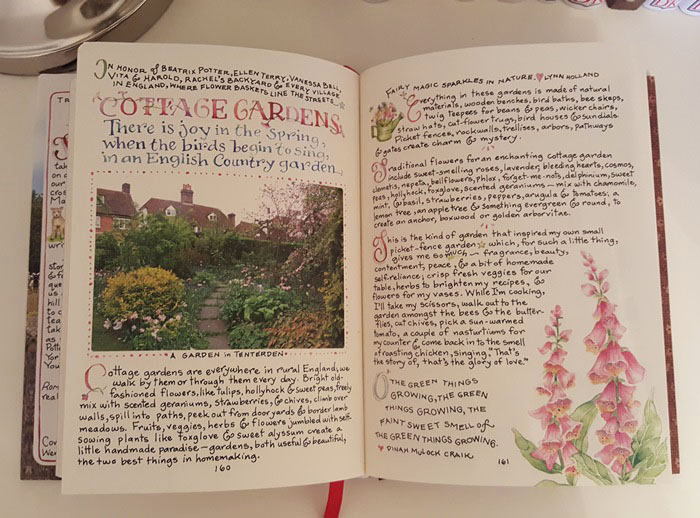 IN HONOR of BEATRIX POTTER, ELLEN TERRY, VANESSA BELL,
VITA & HAROLD, RACHEL'S BACKYARD & EVERY VILLAGE
IN ENGLAND, WHERE FLOWER BASKETS LINE THE STREETS...
COTTAGE GARDENS
There is joy in the Spring,
when the birds begin to sing,
in an English Country garden...
A GARDEN in TENTERDEN
Cottage gardens are everywhere in rural England, we
walk by them or through them every day. Bright old-
fashioned flowers, like tulips, hollyhock & sweet peas, freely
mix with scented geraniums, strawberries, & chives, climb over
walls, spill into paths, peek out from door yards & border lamb
meadows. Fruits, veggies, herbs & flowers jumbled with self-
sowing plants like foxglove & sweet alyssum create a
little handmade paradise — gardens, both useful & beautiful,
the two best things in homemaking.
160
FAIRY MAGIC SPARKLES IN NATURE. ♥ LYNN HOLLAND
Everything in these gardens is made of natural
materials, wooden benches, bird baths, bee skeps,
twig teepees for beans & peas, wicker chairs,
straw hats, cut-flower trugs, bird houses & sundials.
Picket fences, rock walls, trellises, arbors, pathways
& gates create charm & mystery.
Traditional flowers for an enchanting cottage garden
include sweet-smelling roses, lavender, bleeding hearts, cosmos,
clematis, nepeta, bellflowers, phlox, forget-me-nots, delphinium, sweet
peas, hollyhock, foxglove, scented geraniums — mix with chamomile,
mint, & basil, strawberries, peppers, arugula & tomatoes; a
lemon tree, an apple tree & something evergreen & round, to
create an anchor, boxwood or golden arborvitae.
This is the kind of garden that inspired my own small
picket-fence garden which, for such a little thing,
gives me so much — fragrance, beauty,
contentment, peace, & a bit of homemade
self-reliance; crisp fresh veggies for our
table, herbs to brighten my recipes, &
flowers for my vases. While I'm cooking,
I'll take my scissors, walk out to the
garden amongst the bees & the butter-
flies, cut chives, pick a sun-warmed
tomato, a couple of nasturtiums for
my counter & come back in to the smell
of roasting chicken, singing, "That's
the story of, that's the glory of love."
O THE GREEN THINGS
GROWING, THE GREEN
THINGS GROWING, THE
FAINT SWEET SMELL of
THE GREEN THINGS GROWING.
♥ DINAH MULOCK CRAIK
161